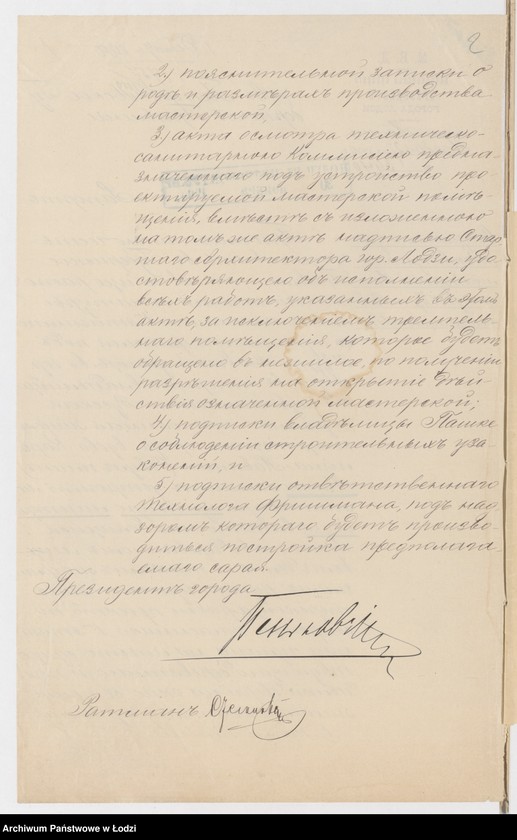 2
2) пояснительной записки о
родѣ и размѣрахъ производства
мастерской,
3) акта осмотра технически-
санитарною Коммисіею предна-
значеннаго подъ устройство про-
ектируемой мастерской помѣ-
щенія, вмѣстѣ съ изложенною
на томъ же актѣ надписью Стар-
шаго Архитектора гор. Лодзи, удо-
стовѣряющею объ исполненіи
всѣхъ работъ, указанныхъ въ этомъ
актѣ, за исключеніемъ
наго помѣщенія, которое будетъ
обращено въ нежилое, по полученіи
разрѣшенія на открытіе дѣй-
ствія означенной мастерской;
4) подписки владѣлицы Пашке
о соблюденіи строительныхъ уза-
коненій, и
5) подписки отвѣтственнаго
технолога Фришмана, подъ над-
зоромъ котораго будетъ произво-
диться постройка предполага-
емаго сарая.
Президентъ города
Пеньковскій
Ратманъ
Archiwum Państwowe w Łodzi